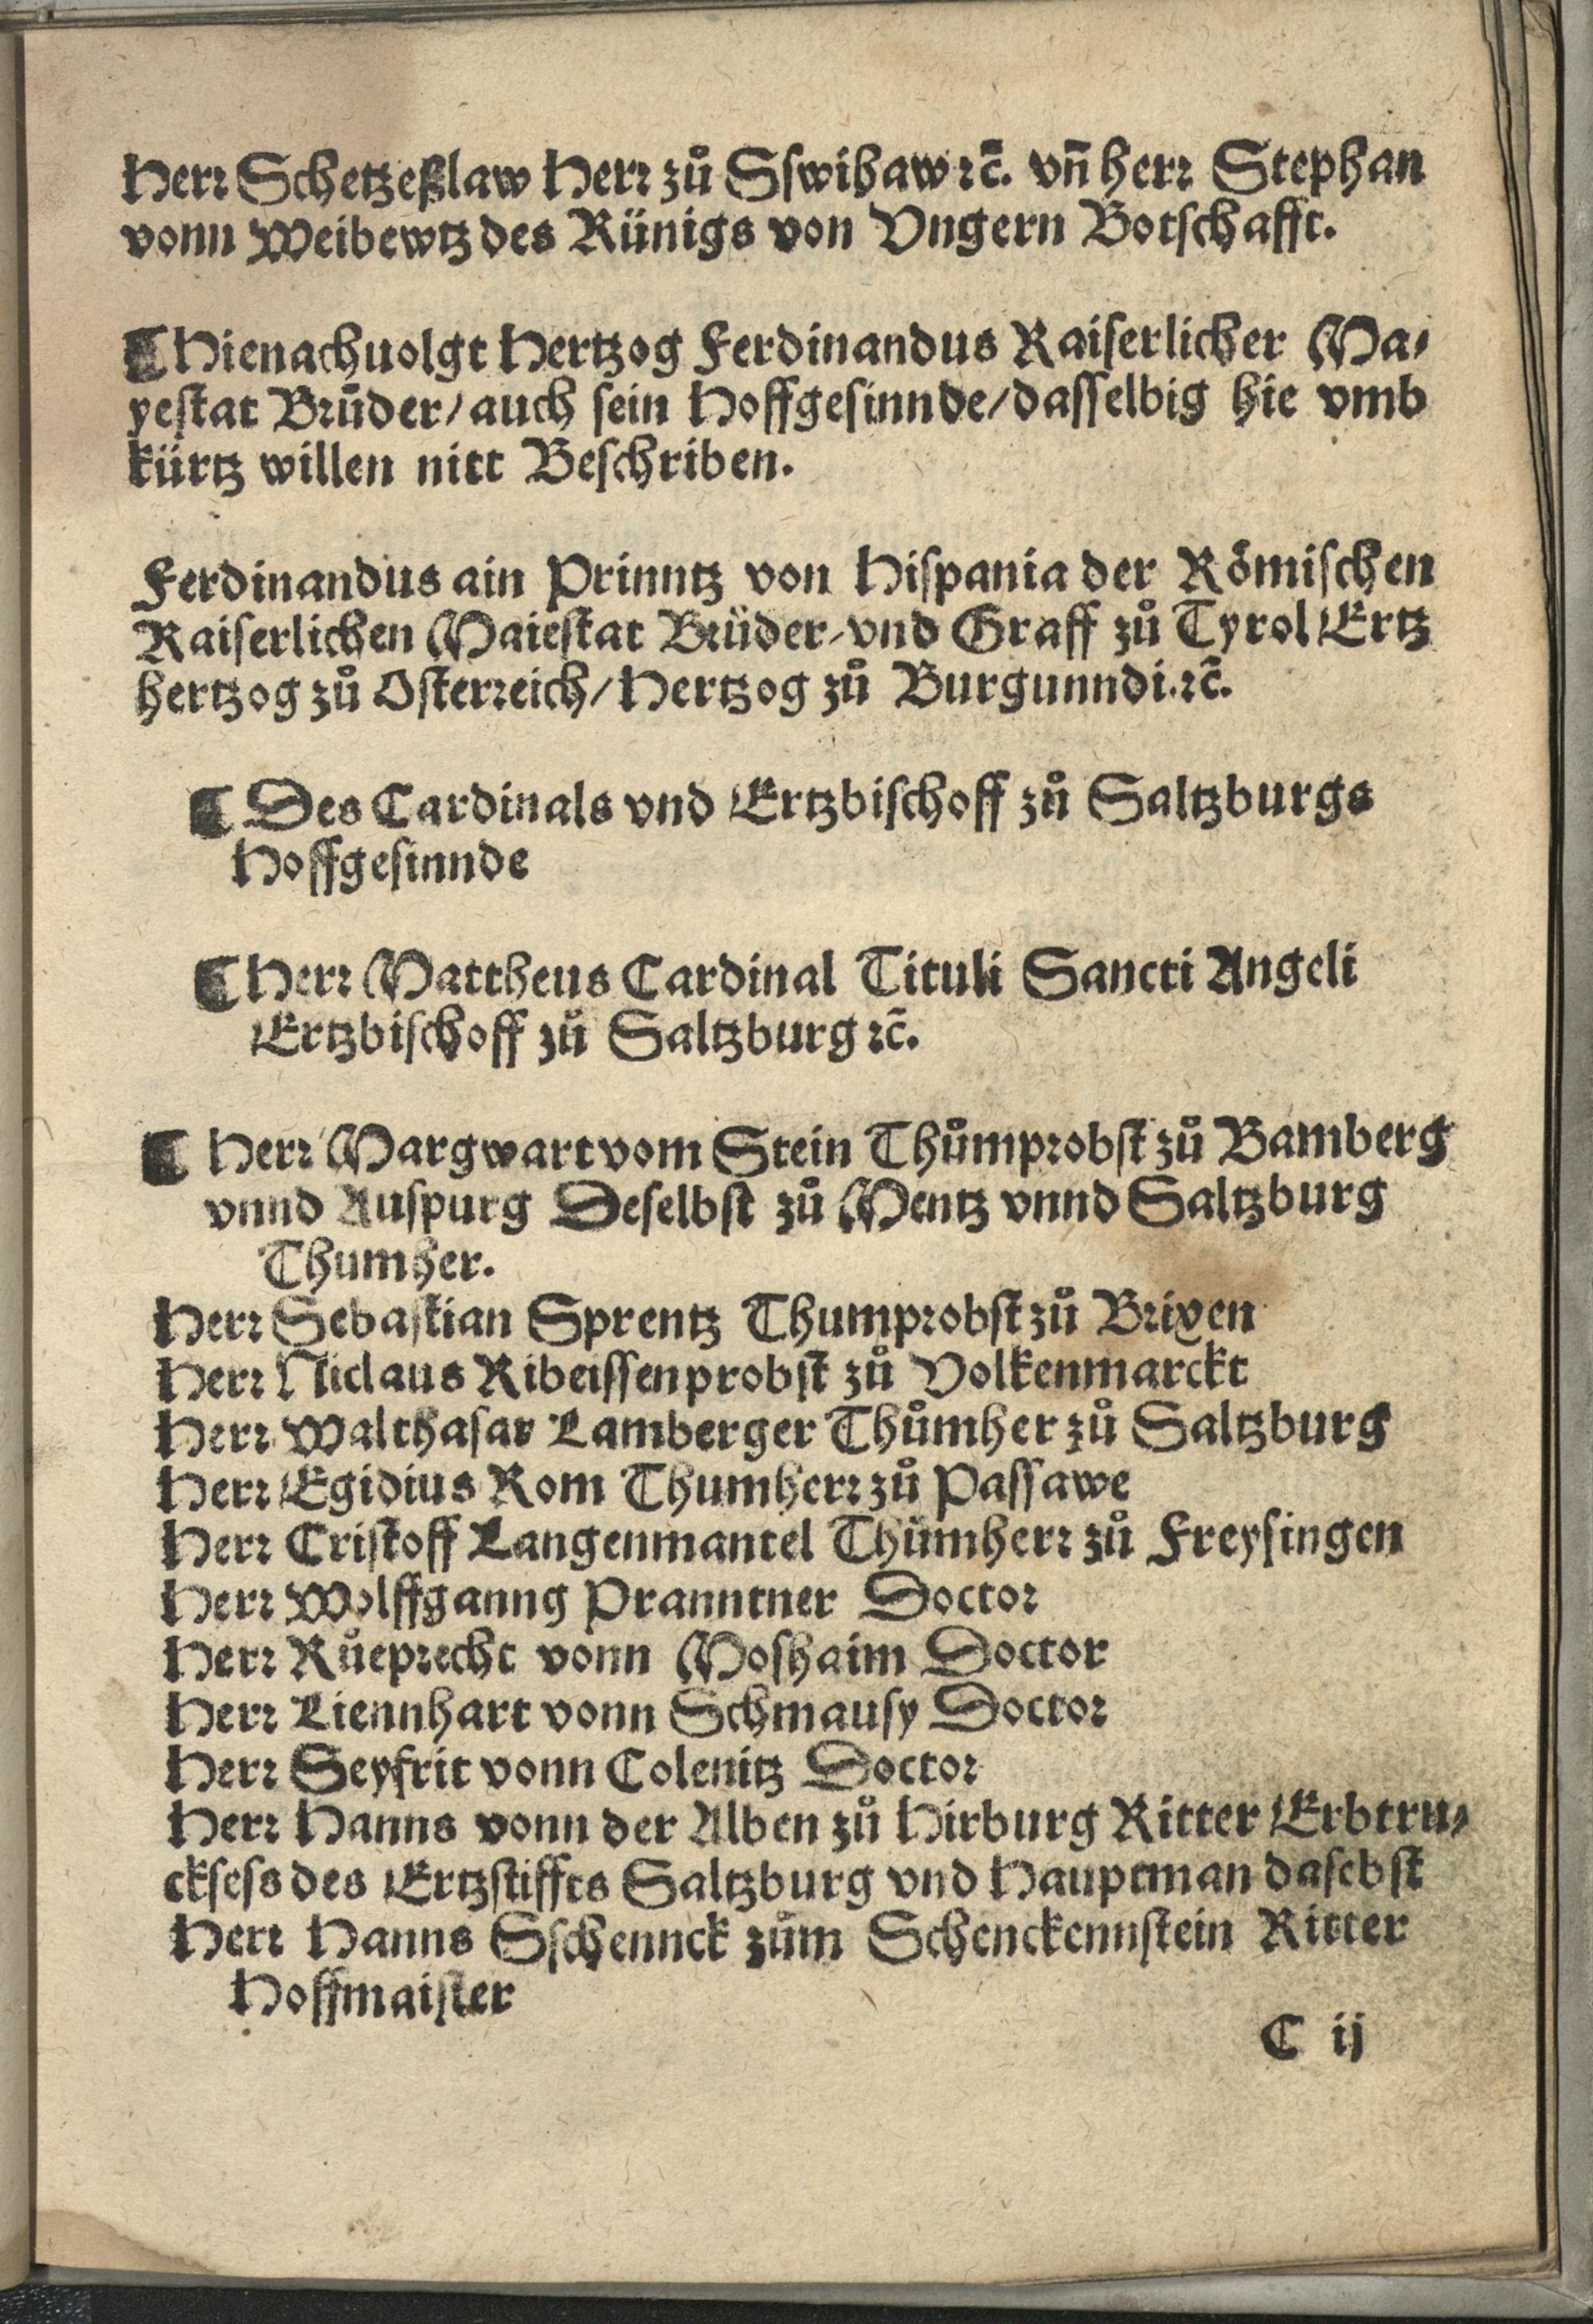 Herr Schetzeßlaw Herr zů Sswihaw ꝛc̃. vñ herr Stephan
vonn Weibewtz des Künigs von Vngern Botschafft.
¶ Hienachuolgt Hertzog Ferdinandus Kaiserlicher Ma⸗
yestat Brůder/ auch sein Hoffgesinnde/ dasselbig hie vmb
kürtz willen nitt Beschriben.
Ferdinandus ain Prinntz von Hispania der Römischen
Kaiserlichen Maiestat Brůder/ vnd Graff zů Tyrol Ertz
hertzog zů Osterreich/ Hertzog zů Burgunndi. ꝛc̃.
¶ Des Cardinals vnd Ertzbischoff zů Saltzburgs
Hoffgesinnde
¶ Herr Mattheus Cardinal Tituli Sancti Angeli
Ertzbischoff zů Saltzburg ꝛc̃.
¶ Herr Margwart vom Stein Thůmprobst zů Bamberg
vnnd Auspurg Deselbst zů Mentz vnnd Saltzburg
Thumher.
Herr Sebastian Sprentz Thumprobst zů Brixen
Herr Niclaus Ribeissen probst zů Volkenmarckt
Herr Walthasar Lamberger Thůmher zů Saltzburg
Herr Egidius Rom Thumherr zů Passawe
Herr Cristoff Langenmantel Thůmherr zů Freysingen
Herr Wolffganng Pranntner Doctor
Herr Růeprecht vonn Moshaim Doctor
Herr Liennhart vonn Schmausy Doctor
Herr Seyfrit vonn Colenitz Doctor
Herr Hanns vonn der Alben zů Hirburg Ritter Erbtru⸗
cksess des Ertzstiffts Saltzburg vnd Hauptman dasebst
Herr Hanns Sschennck zům Schenckennstein Ritter
Hoffmaister
C ij